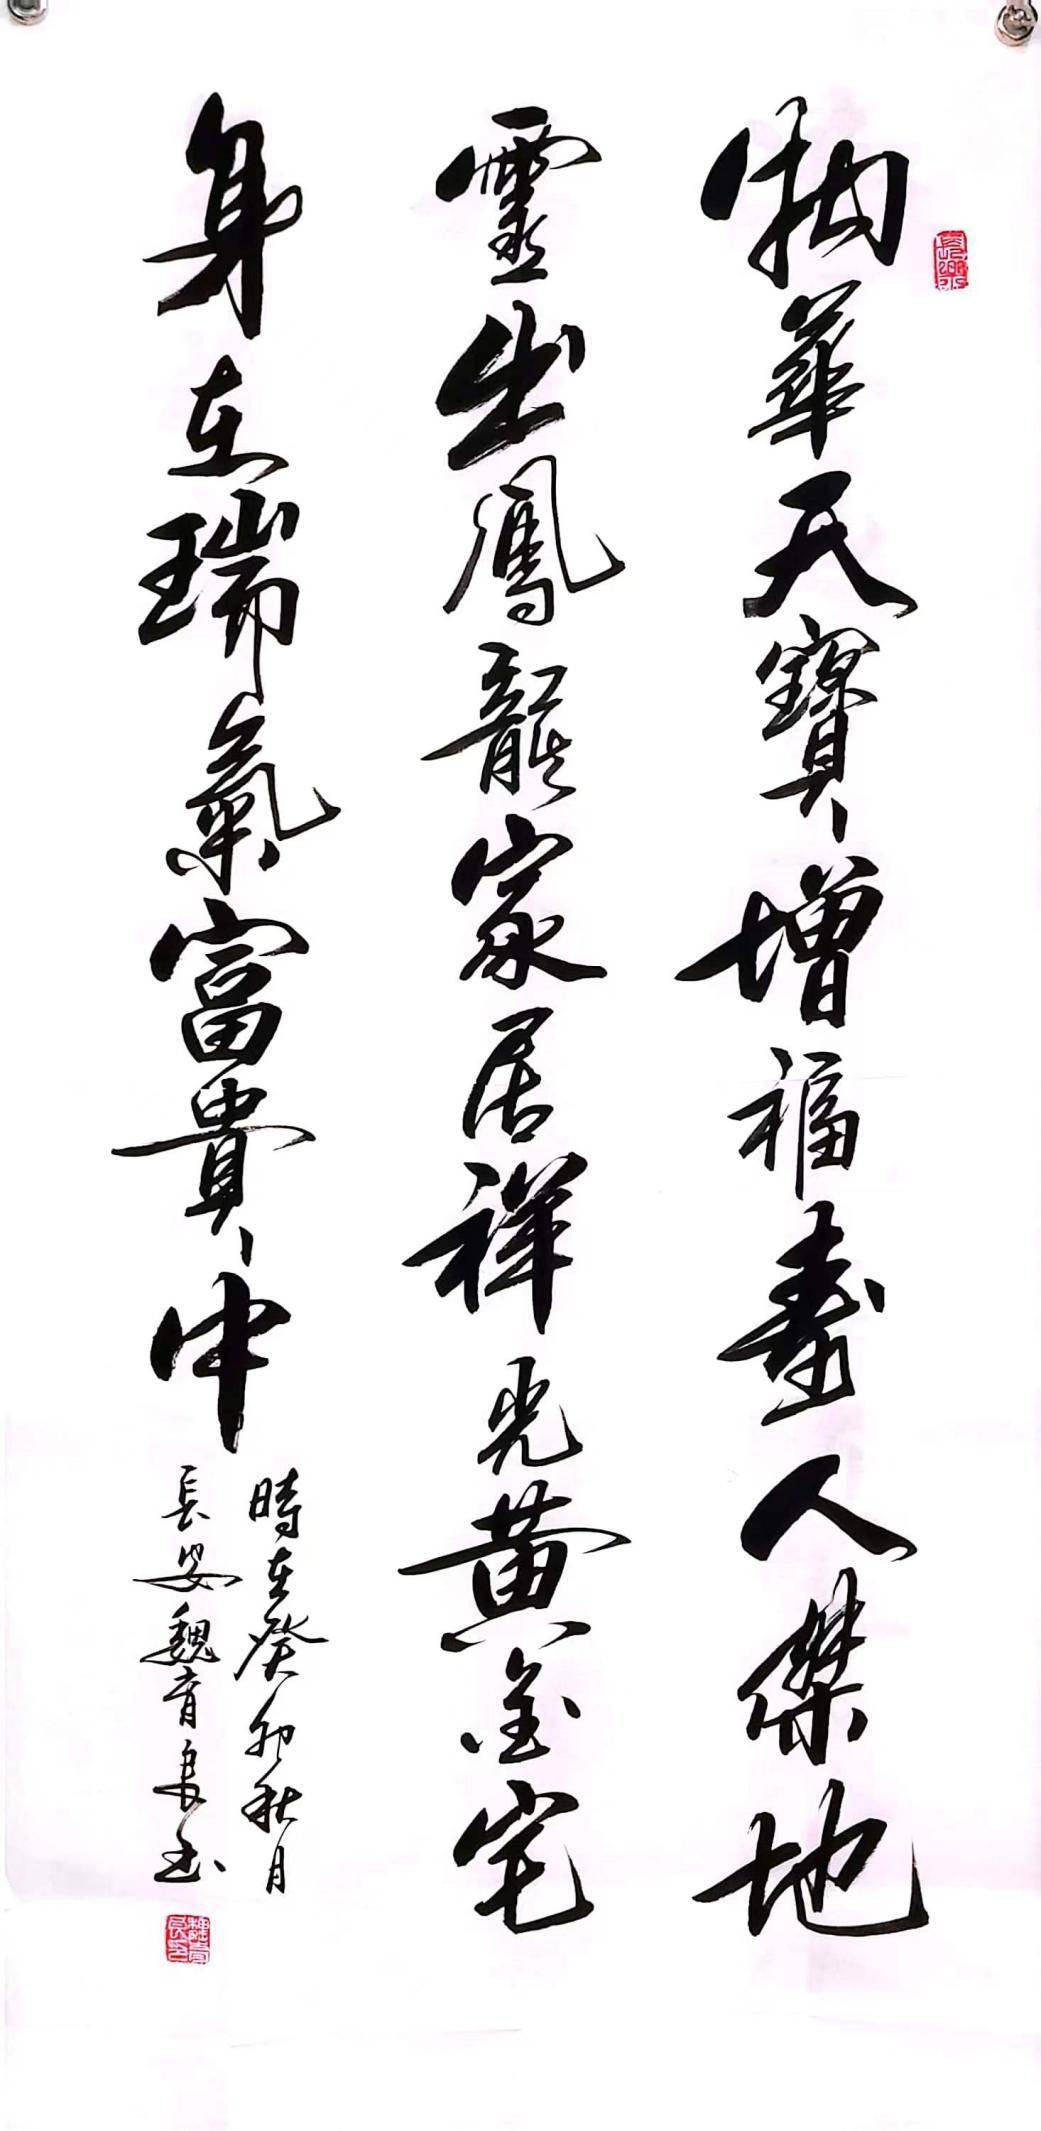 物華天寶增福壽人傑地
靈出鳳龍家居祥光黃金宅
身在瑞氣富貴中
時在癸卯秋月
長安魏青良書